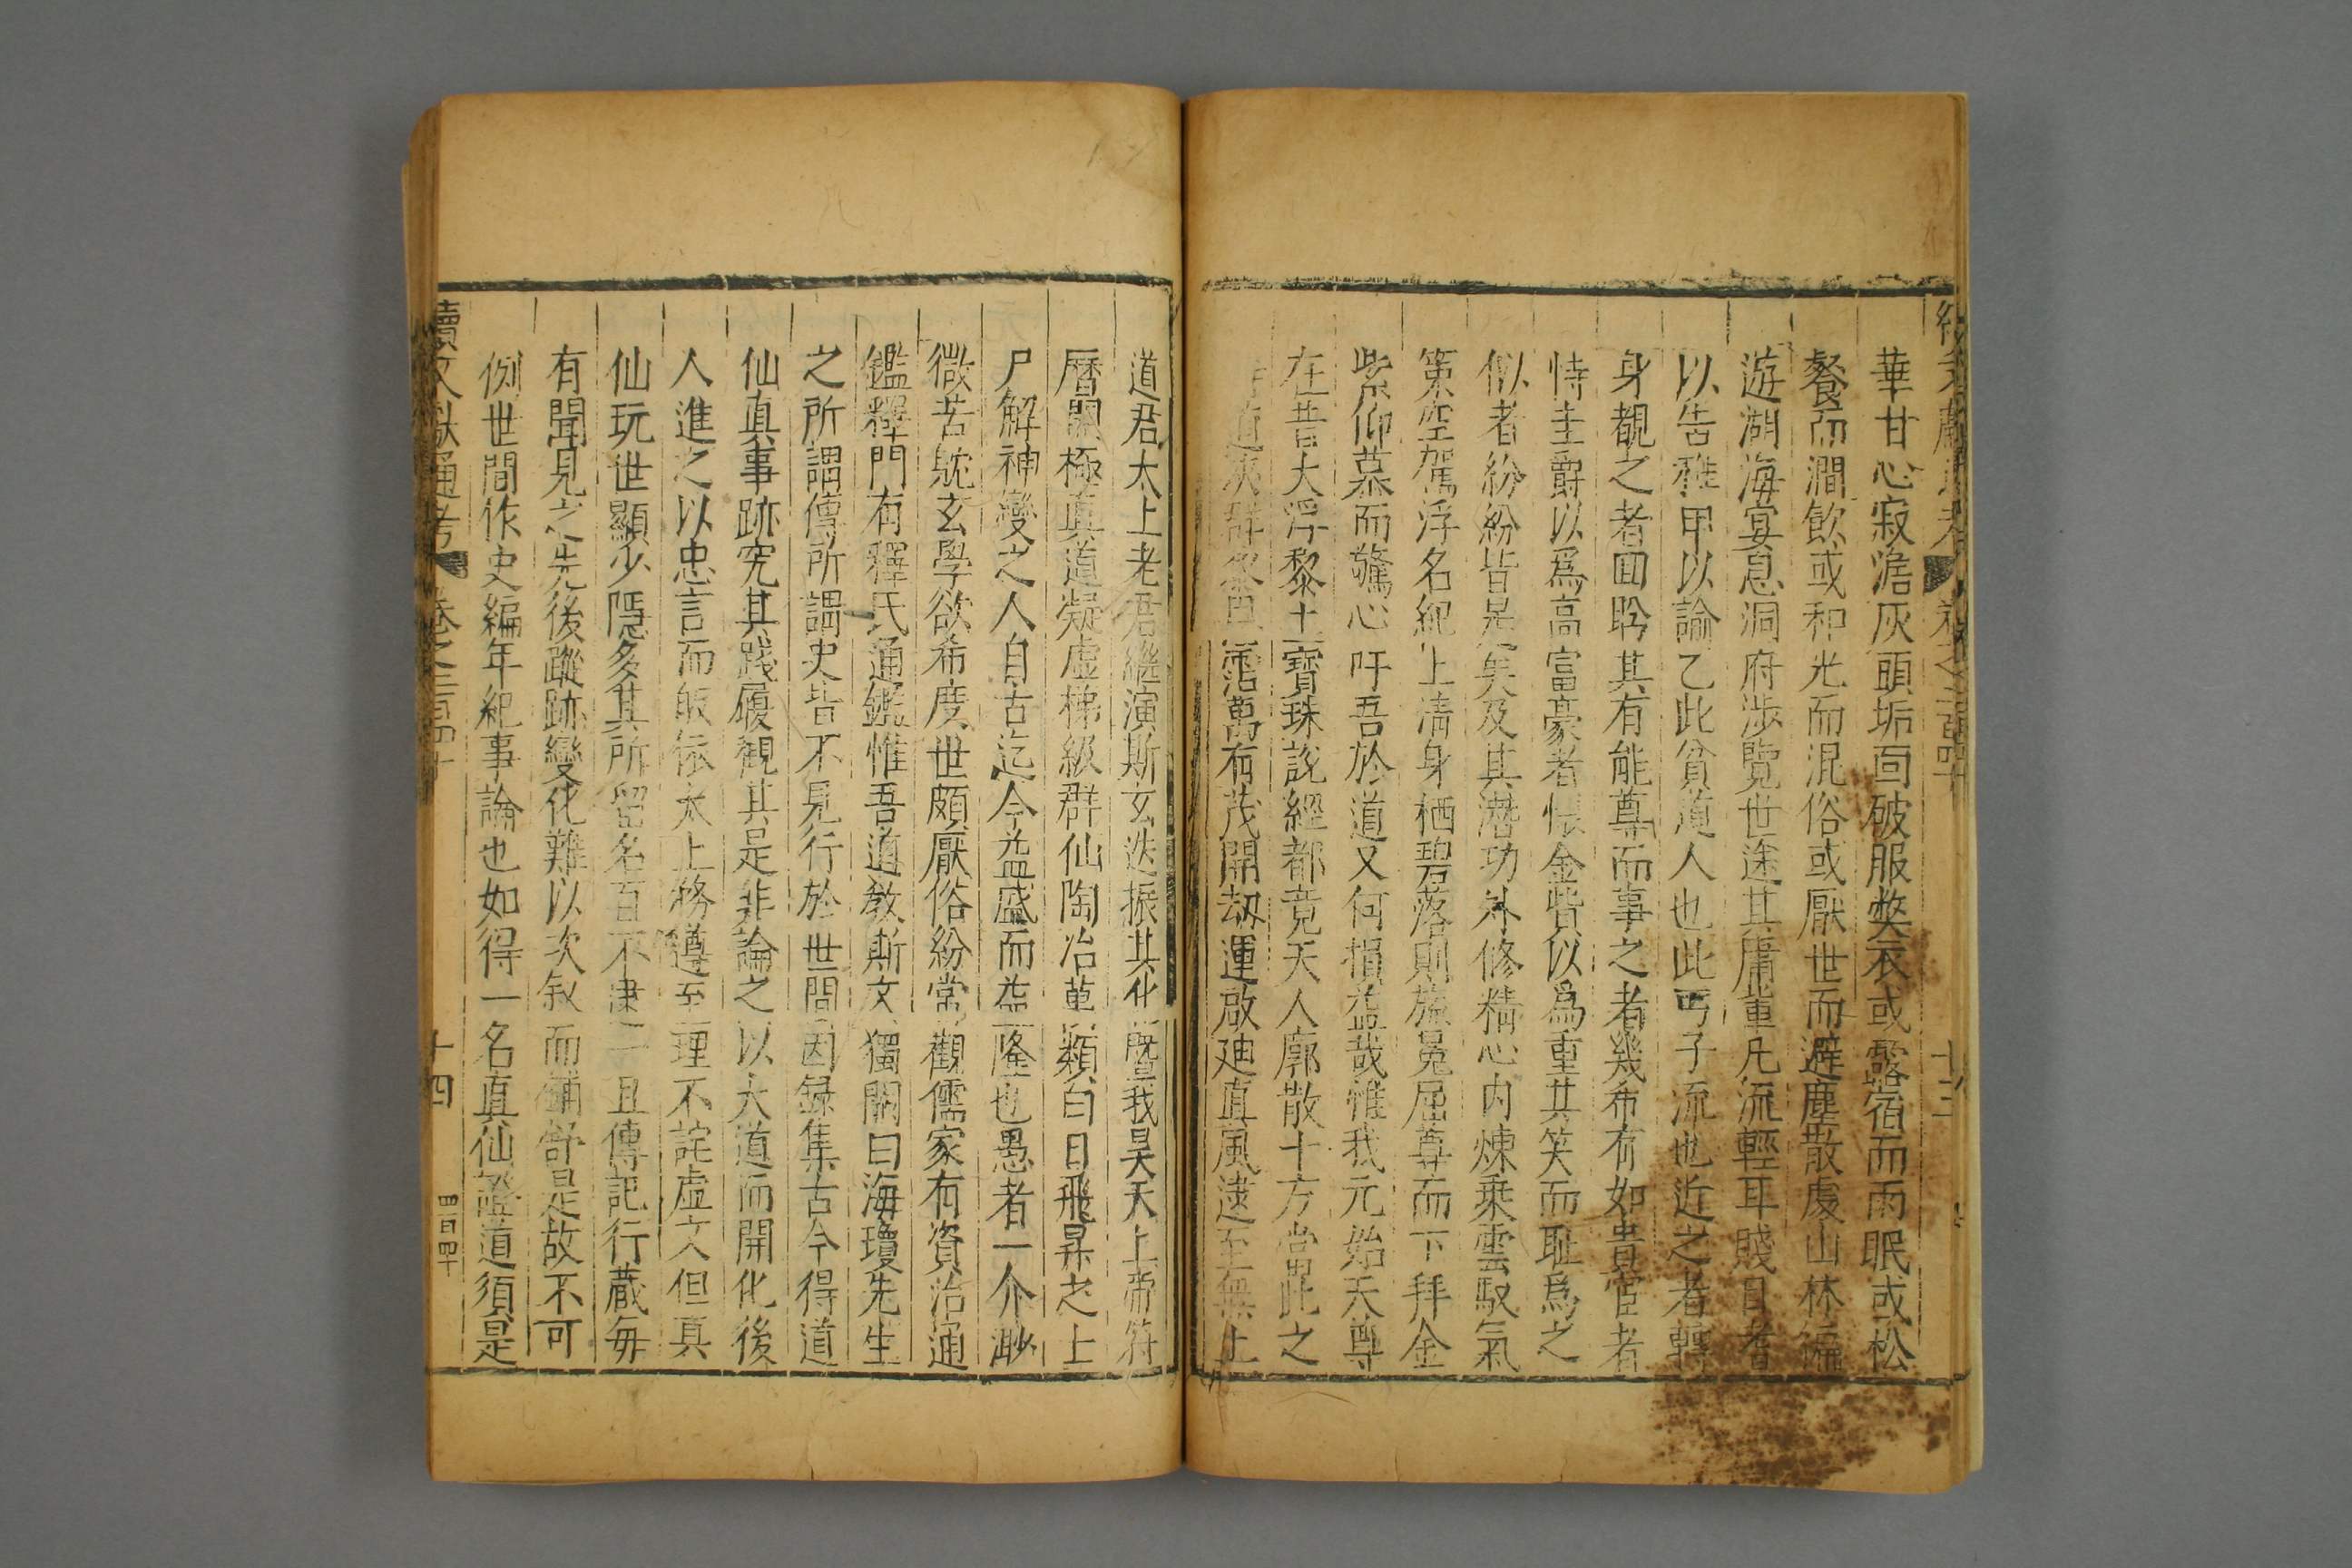 續文獻通考 卷之二百四十 十三
華甘心寂澹灰頭垢面破服獘衣或露宿而雨眠或松
餐而澗飲或和光而混俗或厭世而避塵散處山林徧
遊湖海宴息洞府涉覽世途其庸童凡流輕耳賤目者
以告稚甲以諭乙此貧道人也此丐子流也近之者轉
身覩之者回盻其有能尊而事之者幾希有如貴宦者
恃圭爵以爲高富豪者恨金貲以爲重其笑而耻爲之
似者紛紛皆是矣及其潛功外修精心内煉乘雲馭氣
策空駕浮名紀上清身栖碧落則旒冕屈尊而下拜金
紫仰慕而驚心吁吾於道又何損益哉惟我元始天尊
在昔大浮黎土寶珠說經都竟天人廓散十方當此之
時道爽群黎 霑萬有茂開劫運啟廸真風逮至無上
道君太上老君繼演斯玄迭振其化曁我昊天上帝符
曆開極真道凝虚梯級群仙陶冶萬類白日飛昇之上
尸解神變之人自古迄今益盛而益隆也愚者一介渺
微苦躭玄學欲希度世頗厭俗紛常觀儒家有資治通
鑑釋門有釋氏通鑑惟吾道教斯文獨闕曰海瓊先生
之所謂傳所謂史皆不見行於世間因録集古今得道
仙真事跡究其踐履觀其是非論之以大道而開化後
人進之以忠言而皈依太上務遵至理不詫虚文但真
仙玩世顯少隱多其所留名百不逮一且傳記行藏每
有聞見之先後蹤跡變化難以次叙而鋪舒是故不可
例世間作史編年紀事論也如得一名真仙鑑道須是
續文獻通考 卷之二百四十 十四 四百四十